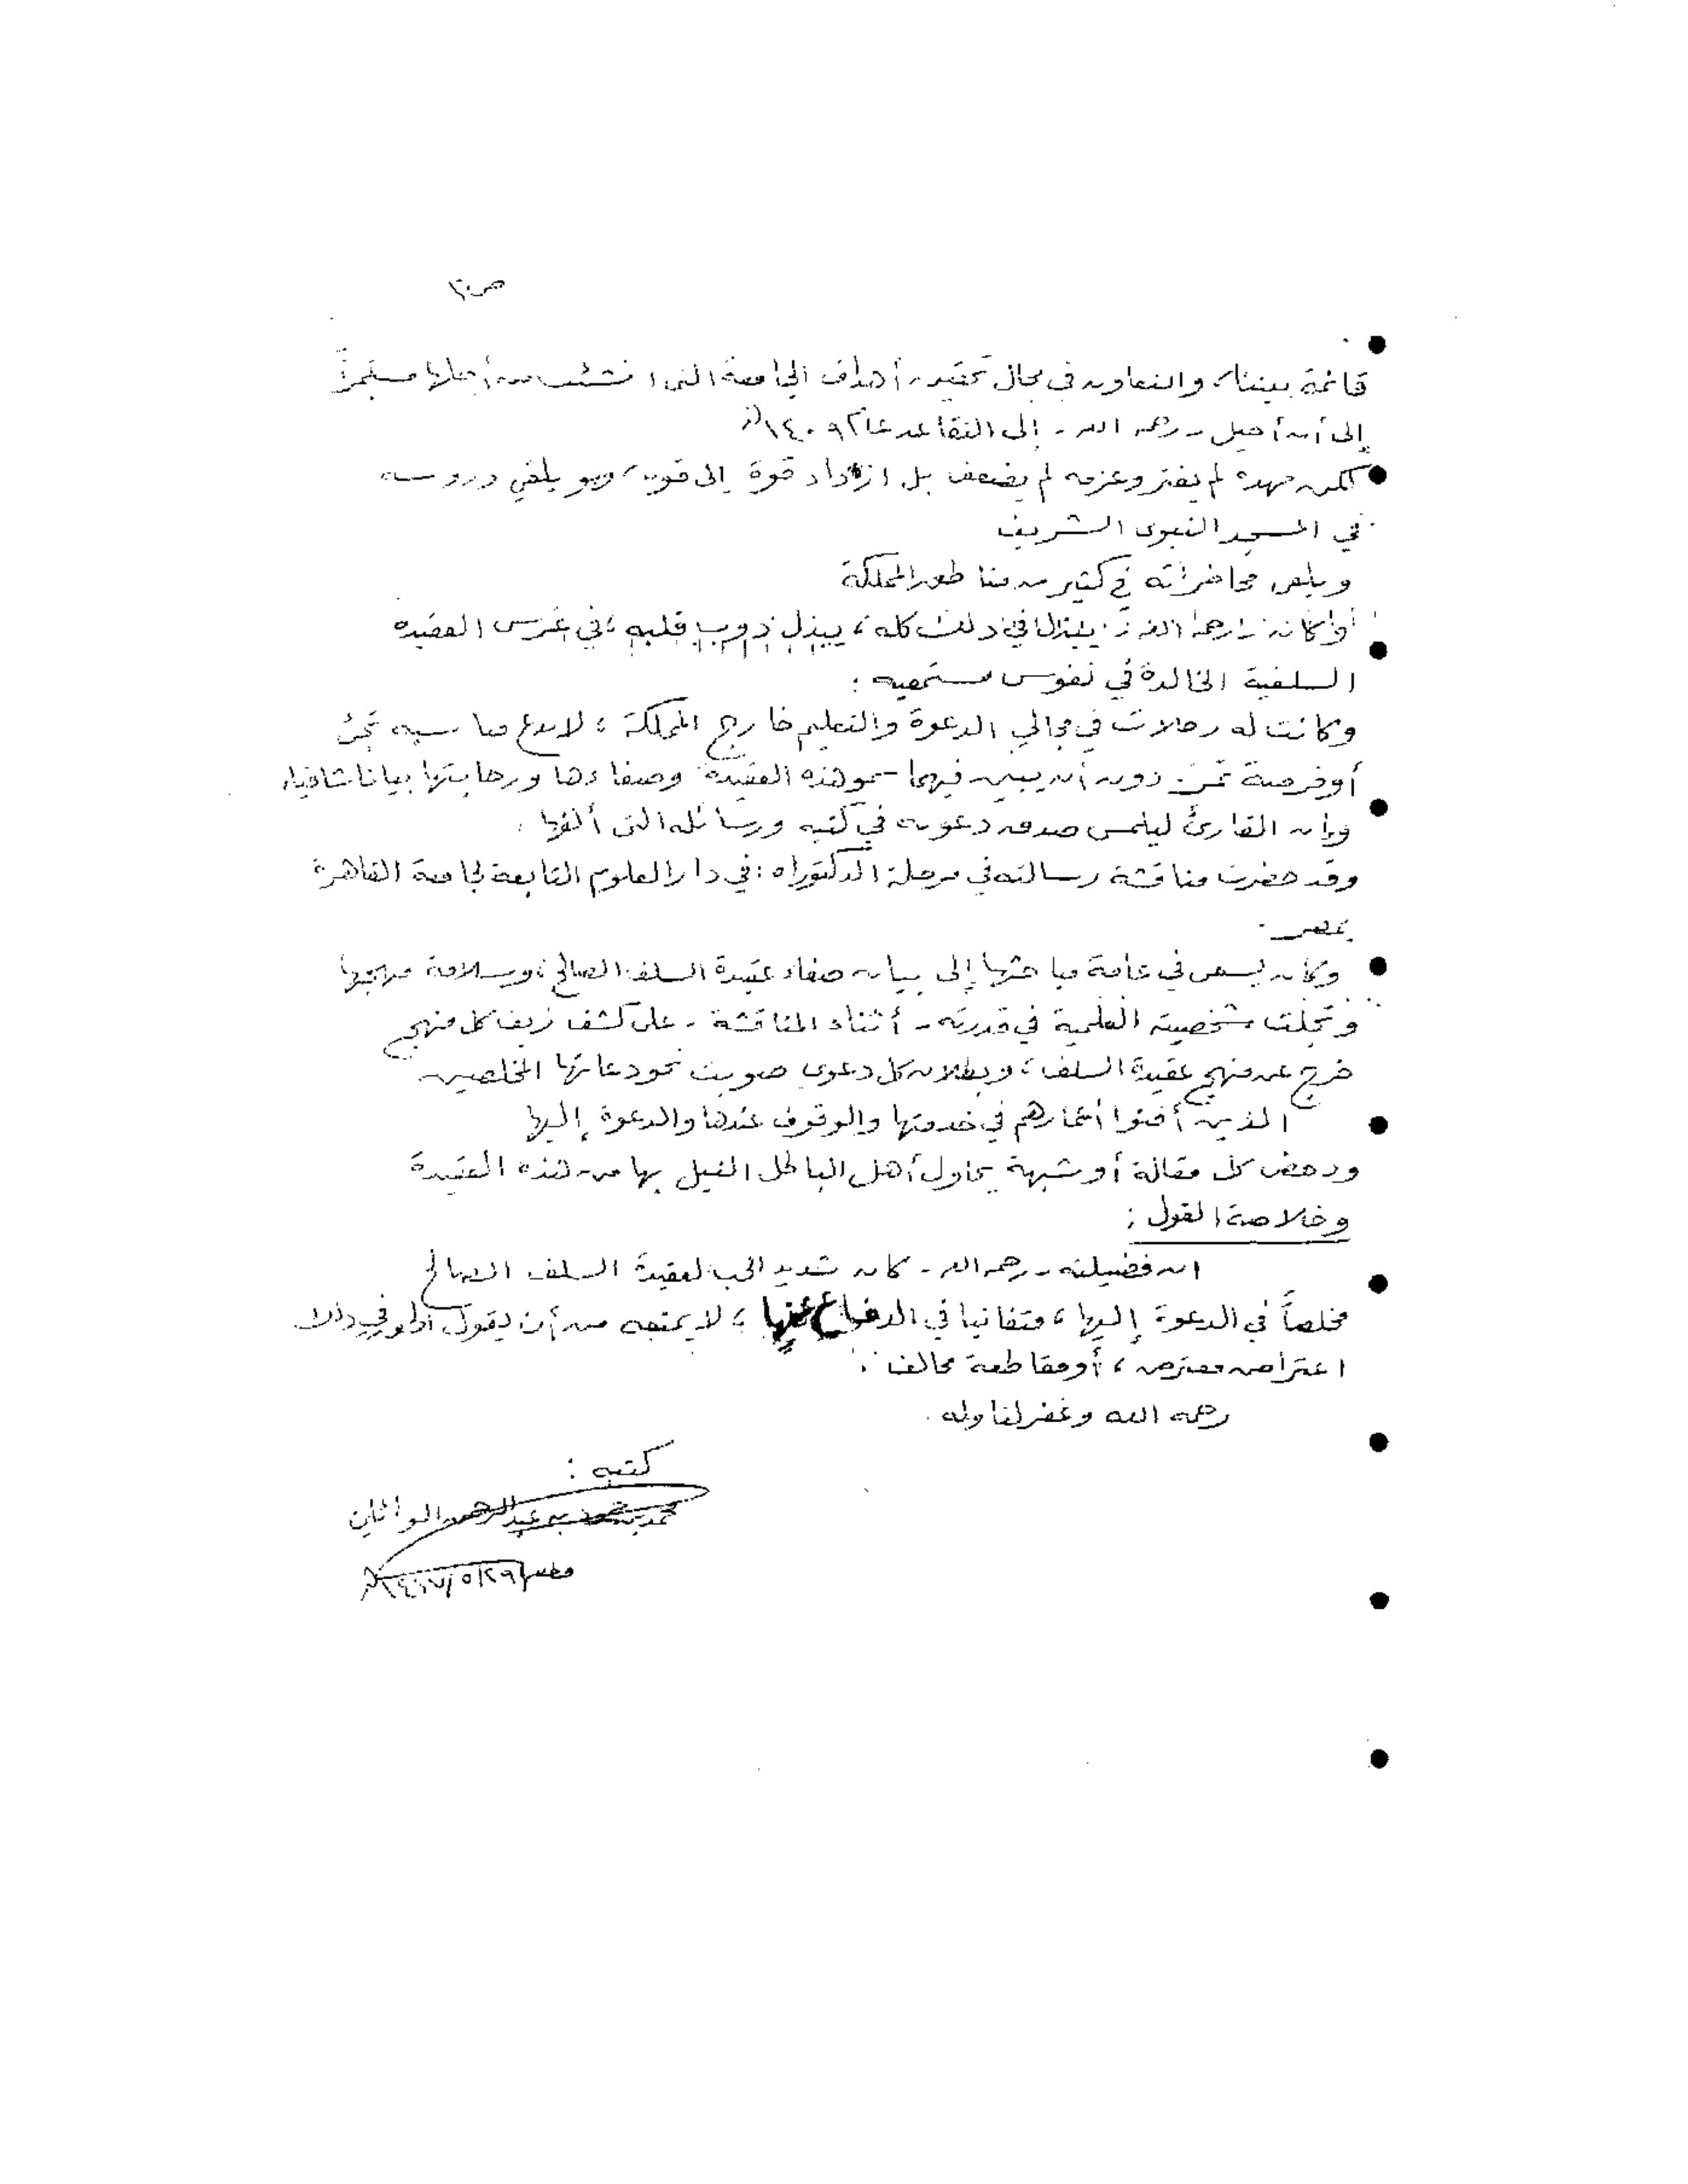 قائمة بيننا، والتعاون في مجال تحقيق أهداف الجامعة التي انشئت من أجلها مستمرًّ
إلى أن أحيل - رحمه الله - إلى التقاعد عام ١٤٠٩هـ
لكن جهده لم يفتر وعزمه لم يضعف بل ازداد قوة إلى قوته، وهو يلقي دروسه
في المسجد النبوي الشريف
ويلقي محاضراته في كثير من مناطق المملكة
وكان - رحمه الله - في ذلك كله، يبذل ذوب قلبه، في غرس العقيدة
السلفية الخالدة في نفوس مستمعيه :
وكانت له رحلات في مجالي الدعوة والتعليم خارج المملكة، لا يدع مناسبة تجئ
أو فرصة تمر دون أن يبين فيهما سمو هذه العقيدة وصفاءها ورحابتها بيانا شافيا،
وإن القارئ ليلمس صدق دعوته في كتبه ورسائله التي ألفها .
وقد حضرت مناقشة رسالته في مرحلة الدكتوراه : في دار العلوم التابعة لجامعة القاهرة
بمصر .
وكان يسعى في عامة مباحثها إلى بيان صفاء عقيدة السلف الصالح، وسلامة منهجها
وتجلت شخصيته العلمية في قدرته - أثناء المناقشة - على كشف زيف كل منهج
خرج عن منهج عقيدة السلف، وبطلان كل دعوى صوبت نحو دعاتها المخلصين
الذين أفنوا أعمارهم في خدمتها والوقوف عندها والدعوة إليها
ودحض كل مقالة أو شبهة يحاول أهل الباطل النيل بها من هذه العقيدة
وخلاصة القول :
ان فضيلته - رحمه الله - كان شديد الحب لعقيدة السلف الصالح
مخلصاً في الدعوة إليها، متفانيا في الدفاع عنها، لا يمنعه من أن يقول
اعتراض معترض، أو مقاطعة مخالف .
رحمه الله وغفر لنا وله .
كتبه :
محمد بن عبد الرحمن الوائلي